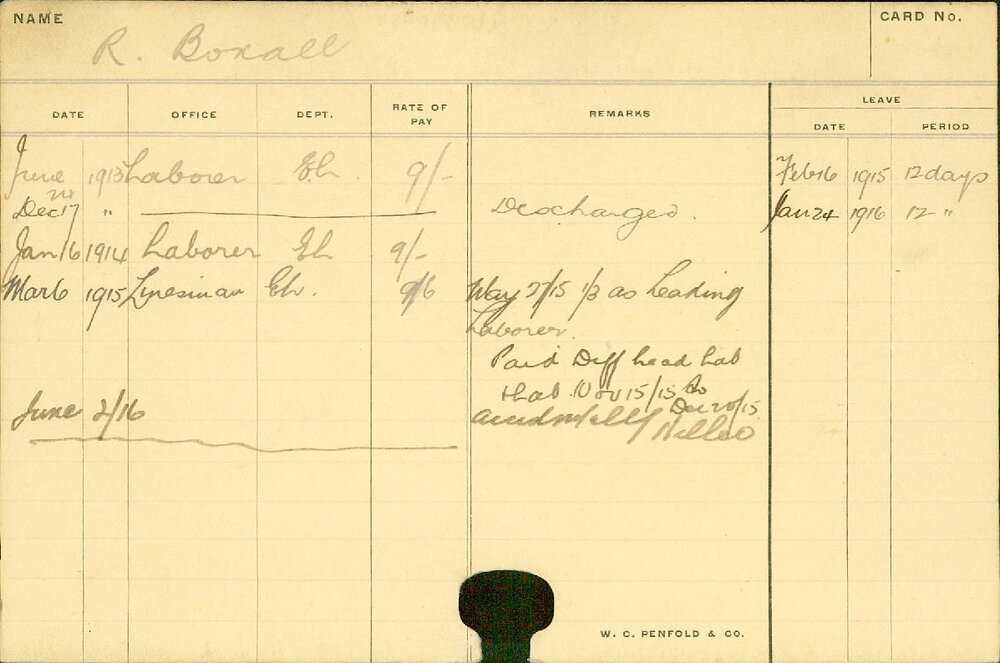 NAME
R. Boxall
CARD No.
DATE OFFICE DEPT. RATE OF PAY REMARKS LEAVE
DATE PERIOD
June 1913 Laborer Eh. 9/- Feb 16 1915 12 days
Dec 17 " Discharged. Jan 24 1916 12 "
Jan 16 1914 Laborer Eh 9/-
Mar 6 1915 Linesman Eh. 9/6 May 2/15 1/3 as Leading
Laborer.
Paid Diff head Lab
+ Lab Nov 15/15 to
Dec 20/15
June 2/16 accidentally Killed
W. C. PENFOLD & CO.